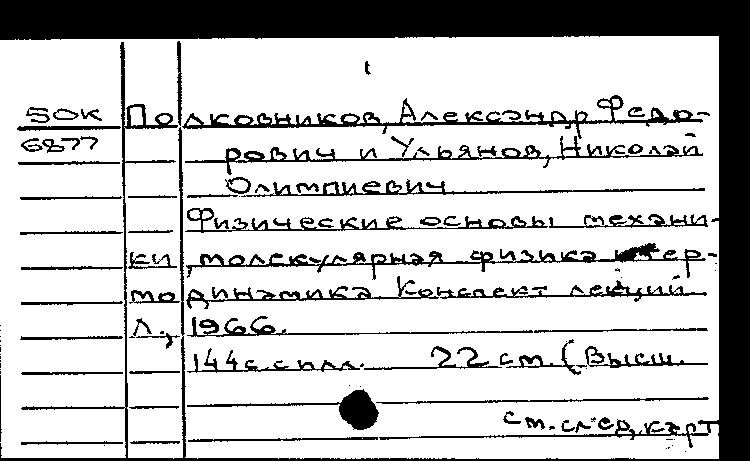 1
50К Полковников, Александр Федо-
6877 рович и Ульянов, Николай
Олимпиевич
Физические основы механи-
ки, молекулярная физика и тер-
модинамика. Конспект лекций.
Л., 1966.
144 с. с илл. 22 см. (Высш.
см. след. карт